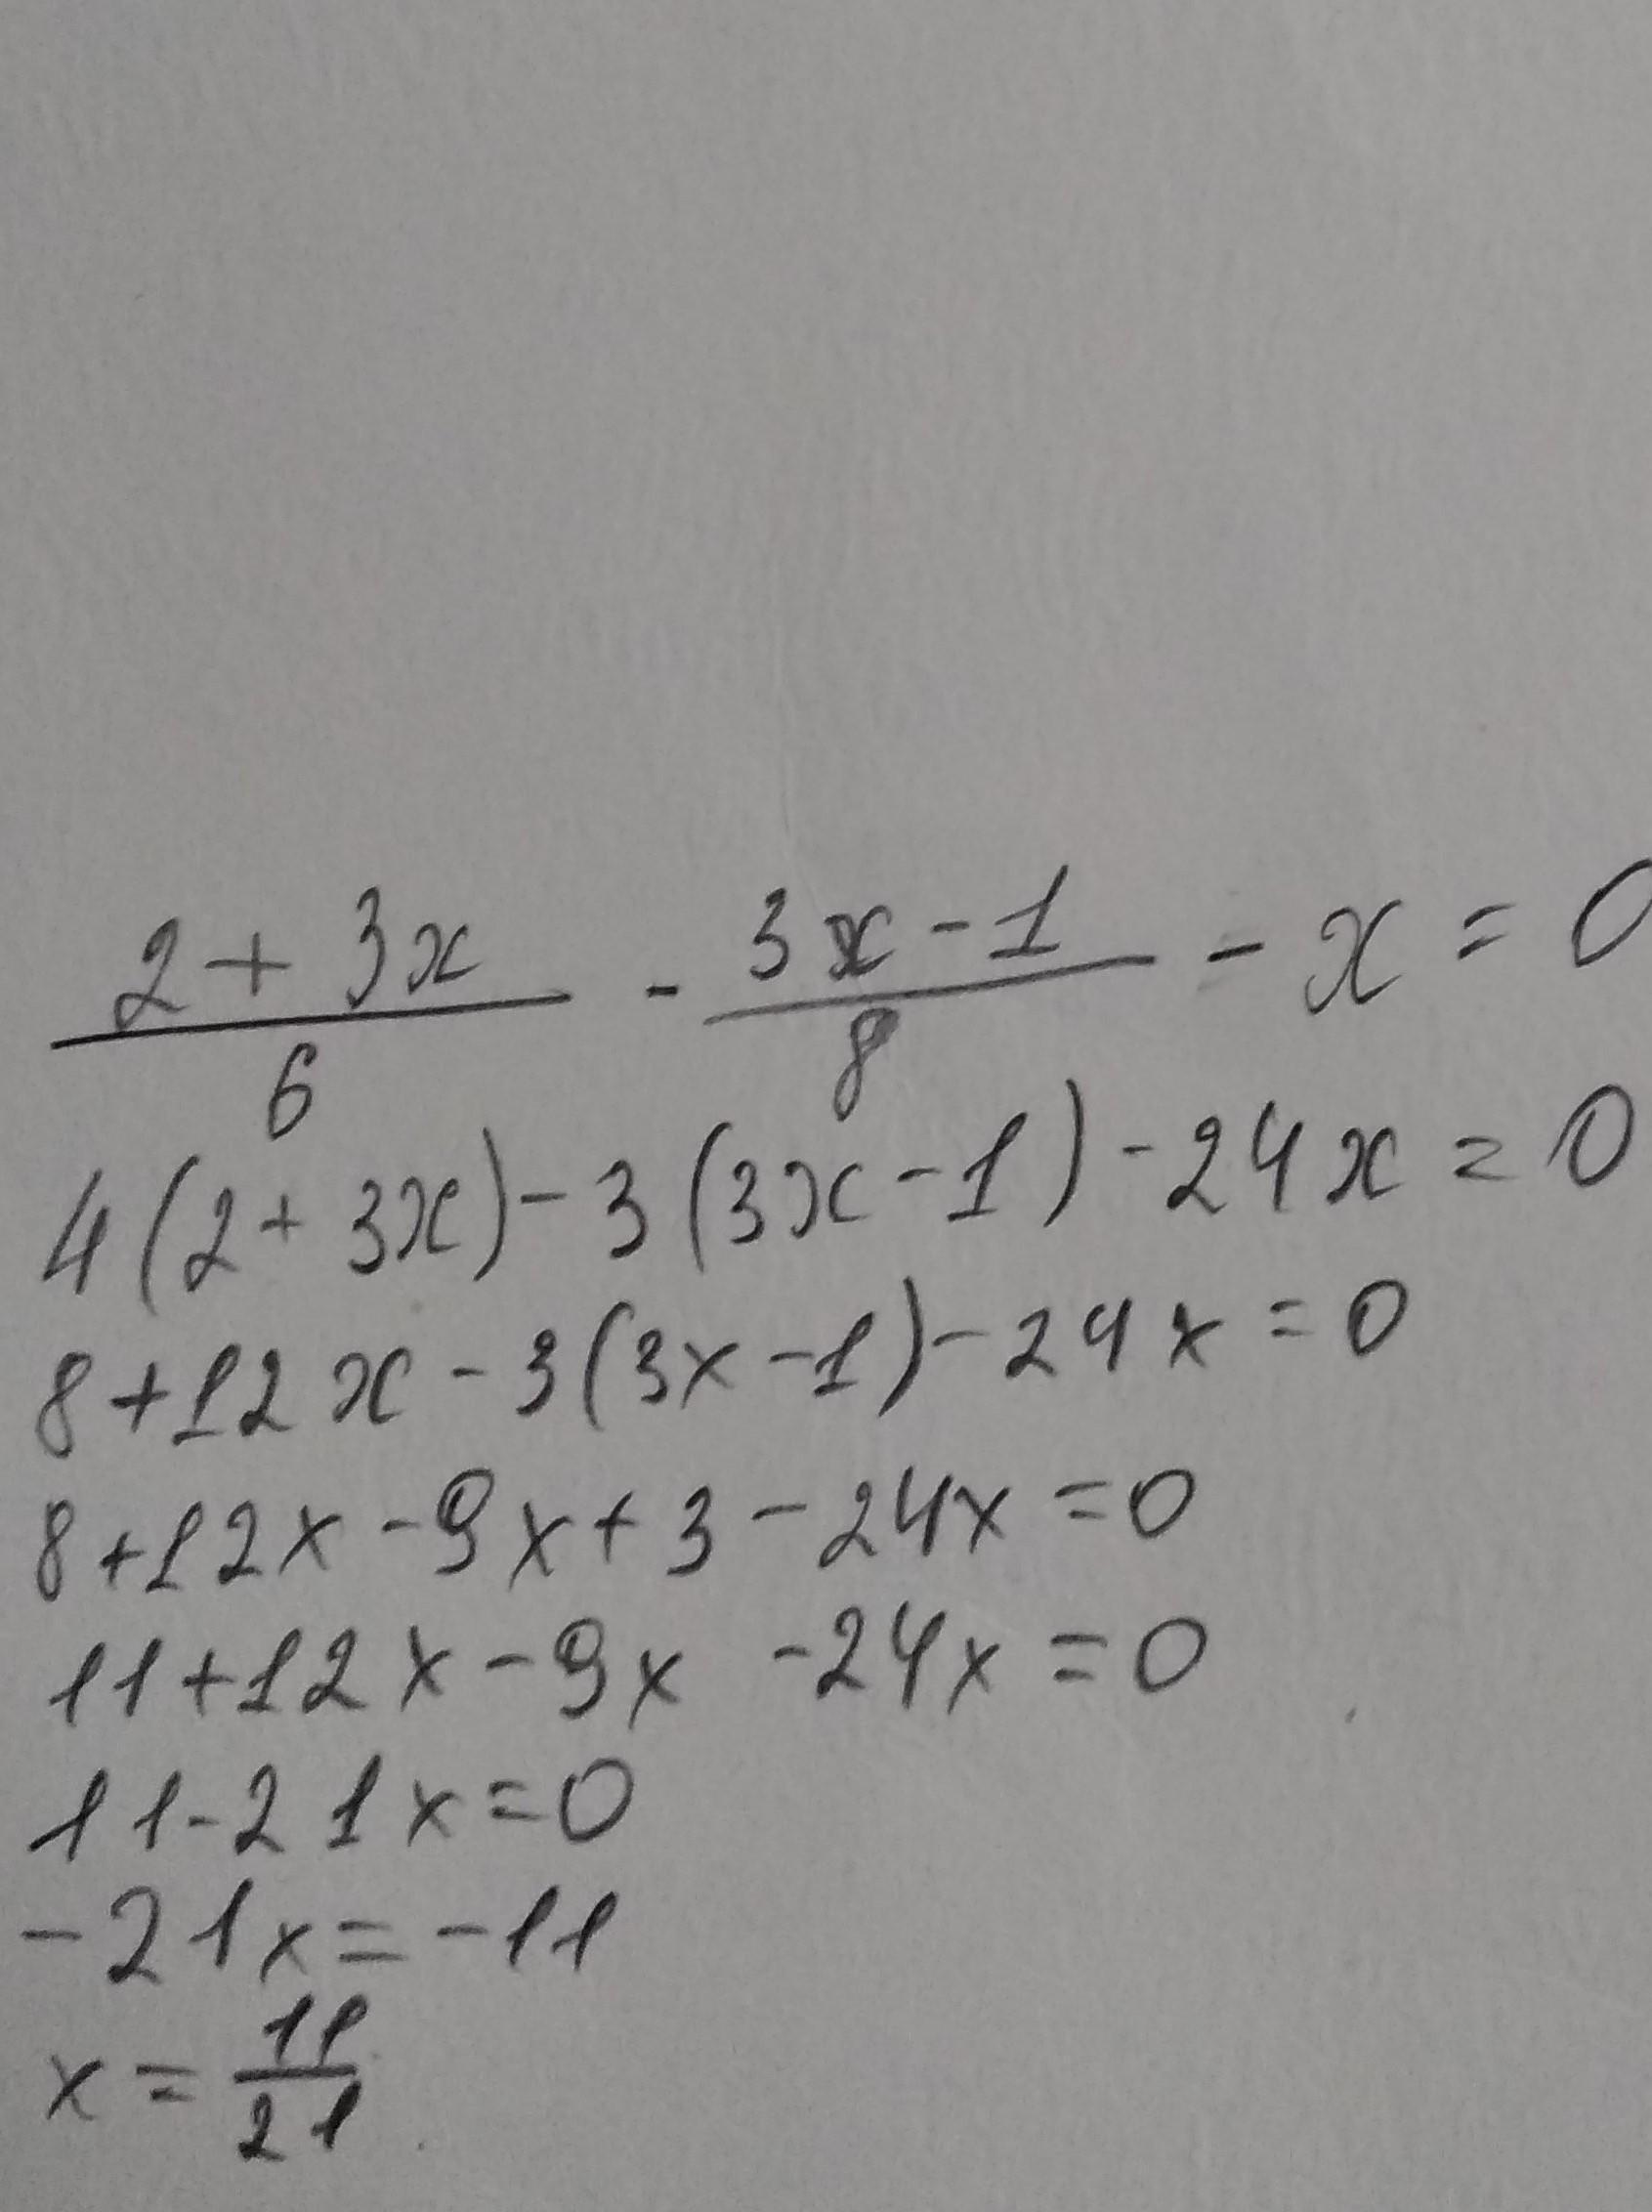 (2 + 3x)/6 - (3x - 1)/8 - x = 0
4(2 + 3x) - 3(3x - 1) - 24x = 0
8 + 12x - 3(3x - 1) - 24x = 0
8 + 12x - 9x + 3 - 24x = 0
11 + 12x - 9x - 24x = 0
11 - 21x = 0
-21x = -11
x = 11/21